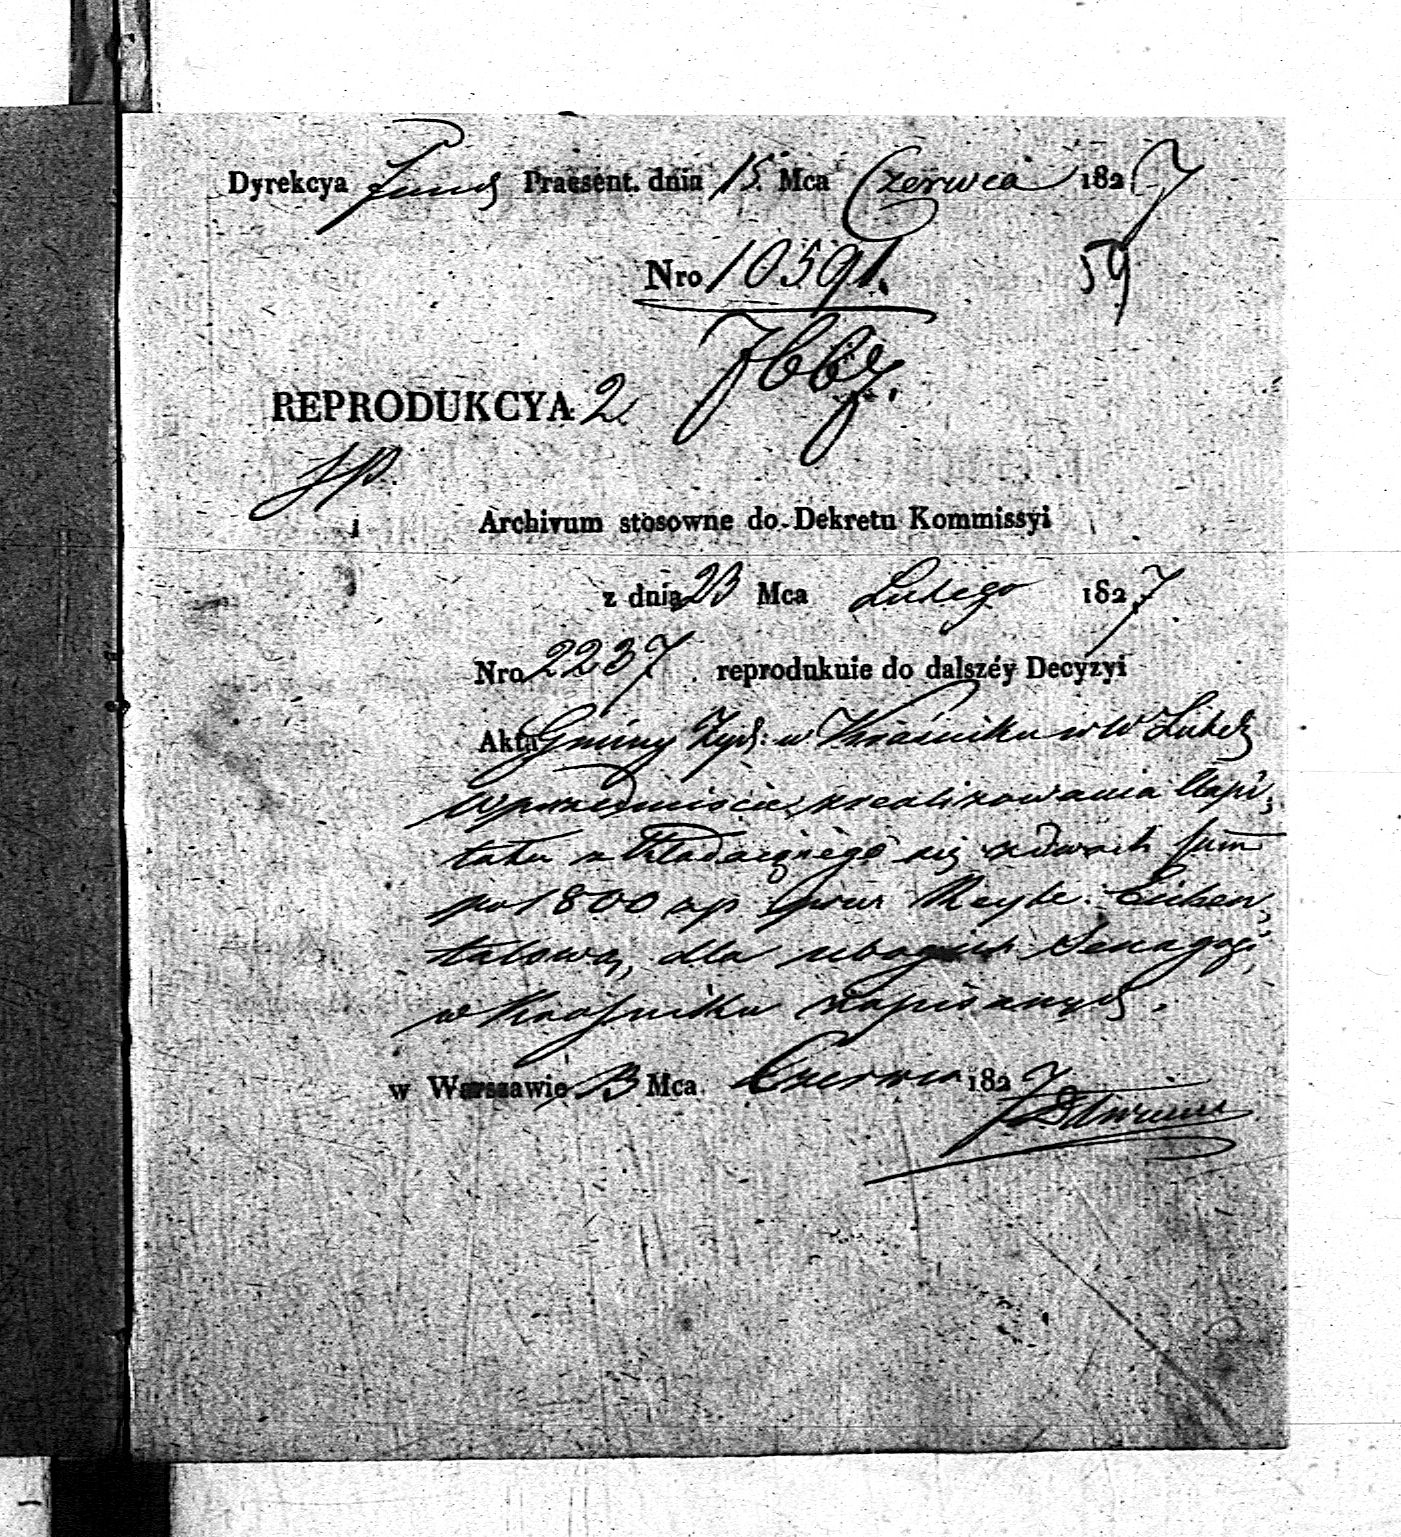 Dyrekcya Fund Praesent. dnia 15. Mca Czerwca 1827
Nro 10591.
59
REPRODUKCYA 2
Archivum stosowne do Dekretu Kommissyi
z dnia 23 Mca Lutego 1827
Nro 2237 reprodukuie do dalszéy Decyzyi
Akta Gminy Żyd: w Kraśniku w W Lubel
w przedmiocie zrealizowania Kapi,
tału składaiącego się z dwóch sum
po 1800 zp przez
talową, dla ubogich Senagogi,
w Krasniku zapisanych.
w Warszawie 13 Mca Czerwca 1827